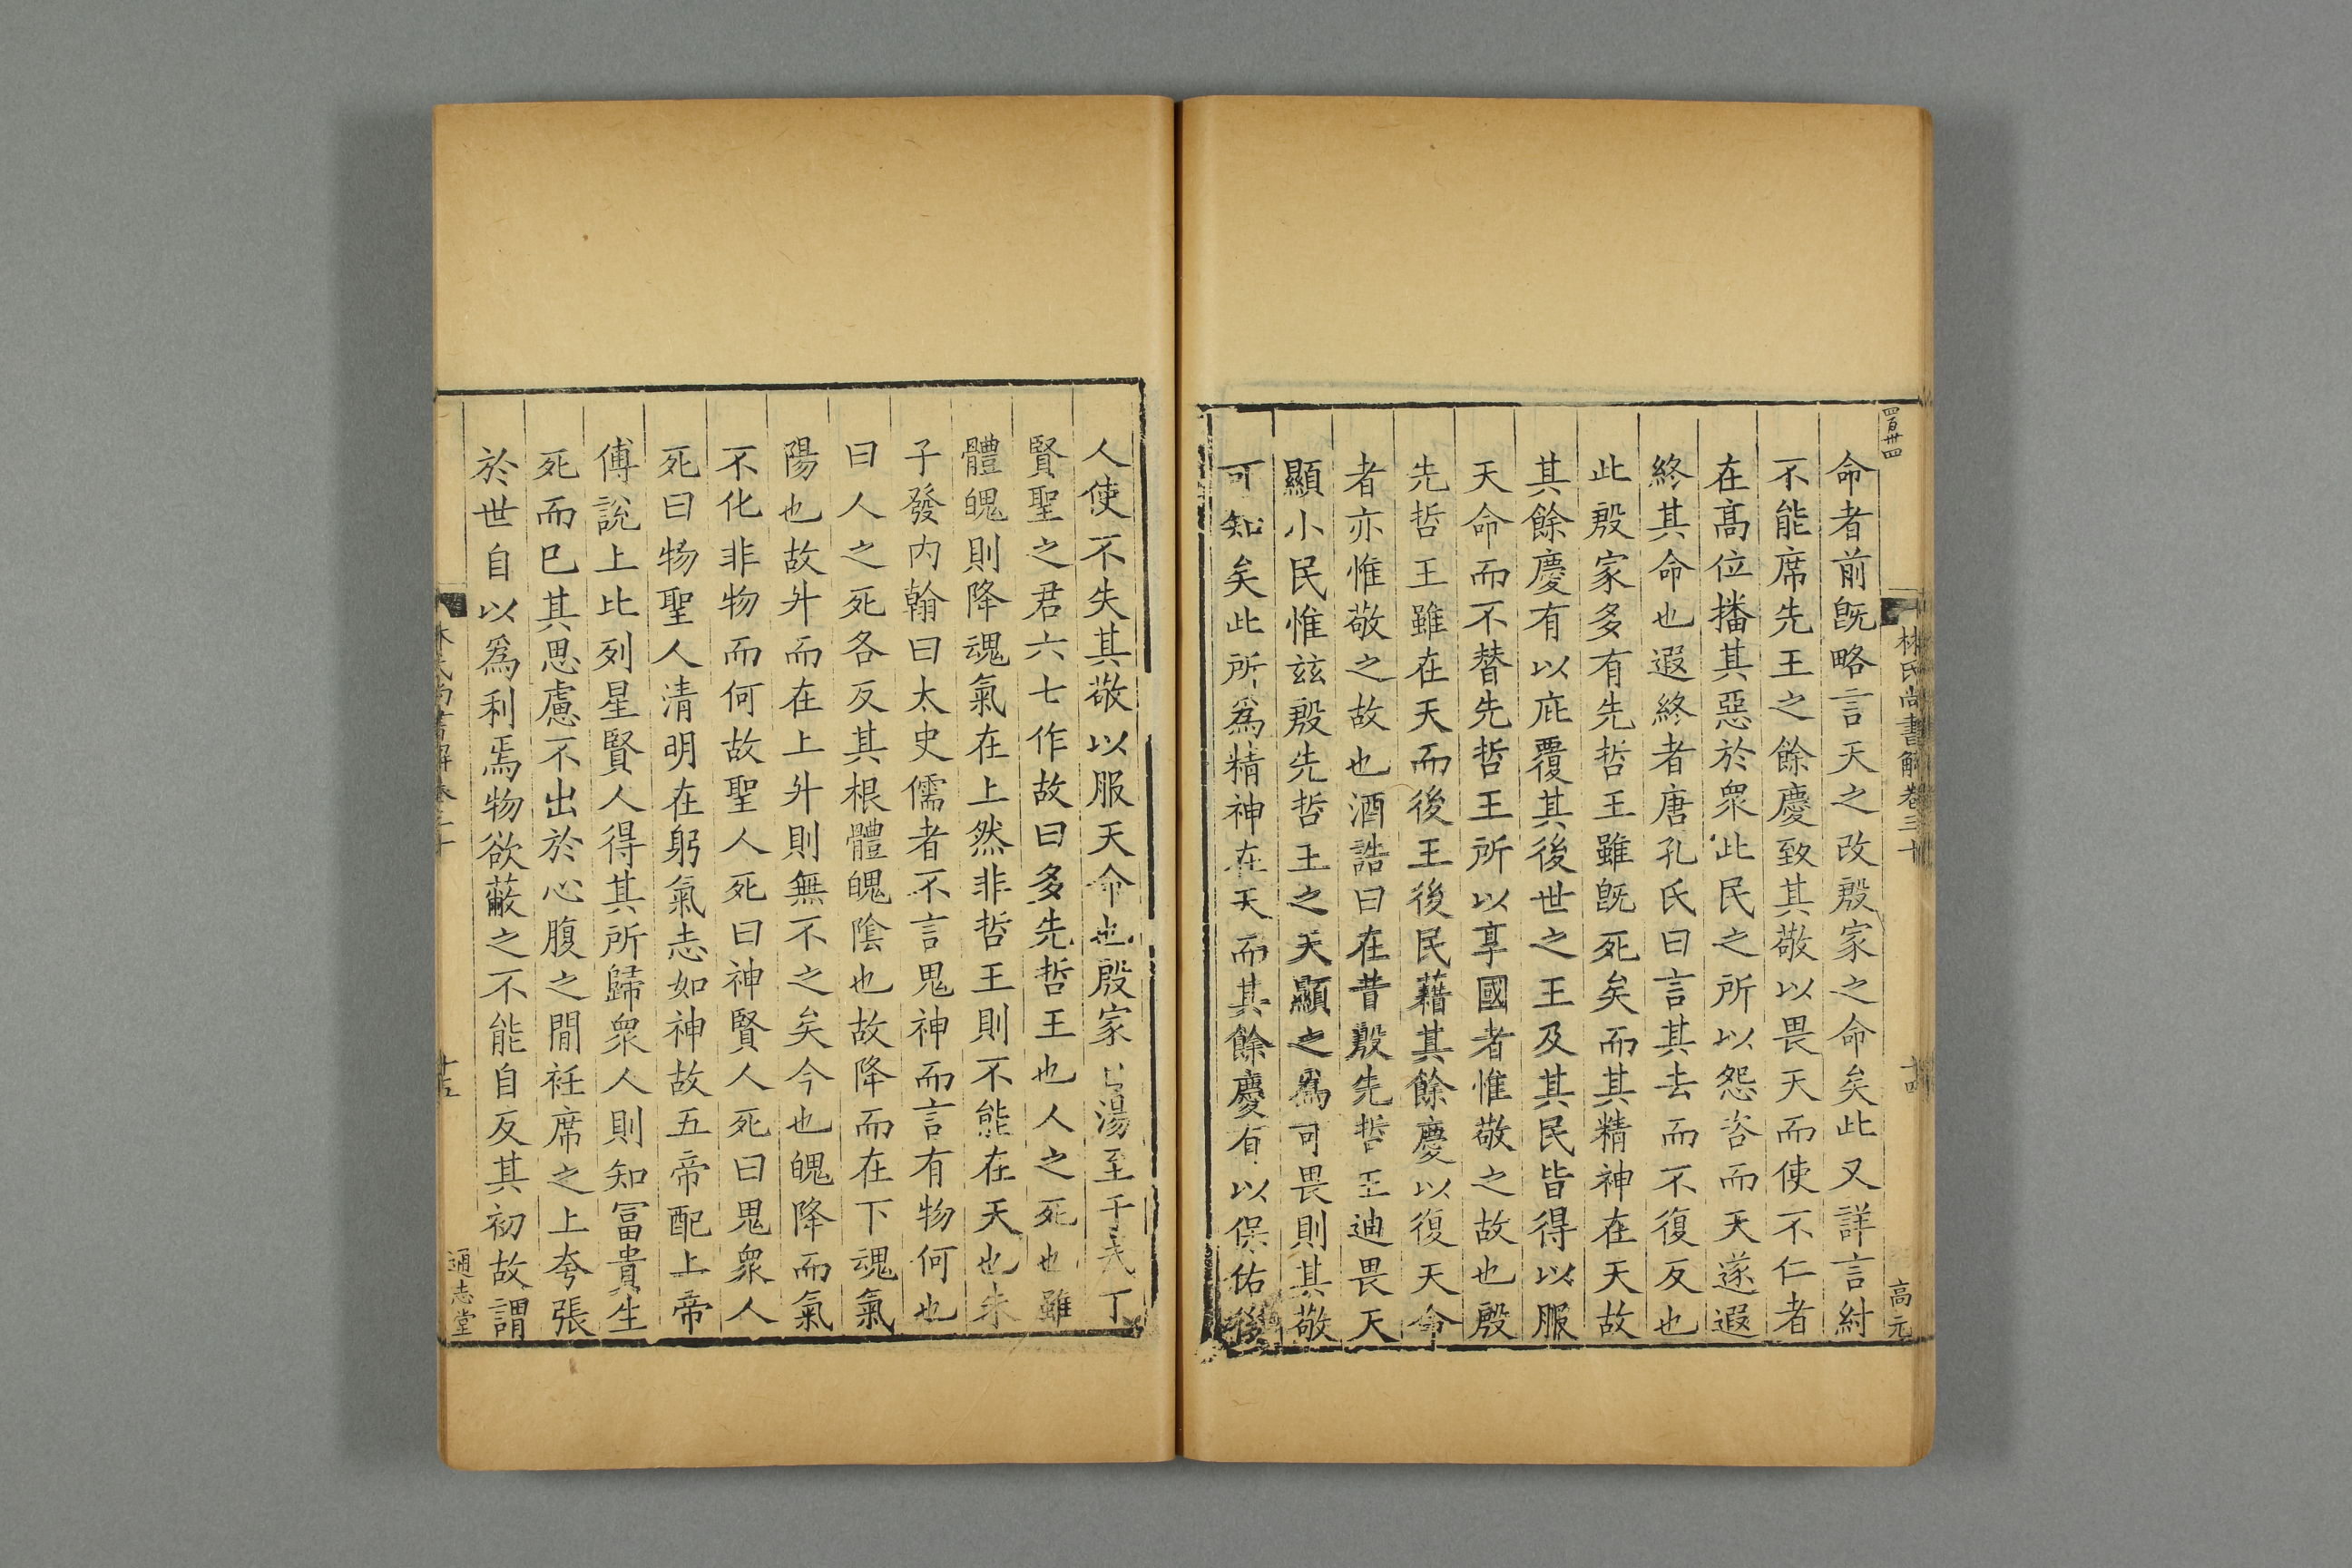 四百卅四
林氏尚書解卷三十
十四
高元
命者前旣略言天之改殷家之命矣此又詳言紂
不能席先王之餘慶致其敬以畏天而使不仁者
在高位播其惡於衆此民之所以怨咨而天遂遐
終其命也遐終者唐孔氏曰言其去而不復反也
此殷家多有先哲王雖旣死矣而其精神在天故
其餘慶有以庇覆其後世之王及其民皆得以服
天命而不替先哲王所以享國者惟敬之故也殷
先哲王雖在天而後王後民藉其餘慶以復天命
者亦惟敬之故也酒誥曰在昔殷先哲王迪畏天
顯小民惟兹殷先哲王之天顯之爲可畏則其敬
可知矣此所爲精神在天而其餘慶有以保佑後
人使不失其敬以服天命也殷家湯至于武丁
賢聖之君六七作故曰多先哲王也人之死也雖
體魄則降魂氣在上然非哲王則不能在天也朱
子發内翰曰太史儒者不言鬼神而言有物何也
曰人之死各反其根體魄陰也故降而在下魂氣
陽也故升而在上升則無不之矣今也魄降而氣
不化非物而何故聖人死曰神賢人死曰鬼衆人
死曰物聖人清明在躬氣志如神故五帝配上帝
傅說上比列星賢人得其所歸衆人則知冨貴生
死而已其思慮不出於心腹之閒衽席之上夸張
於世自以爲利焉物欲蔽之不能自反其初故謂
林氏尚書解卷三十
十五
通志堂